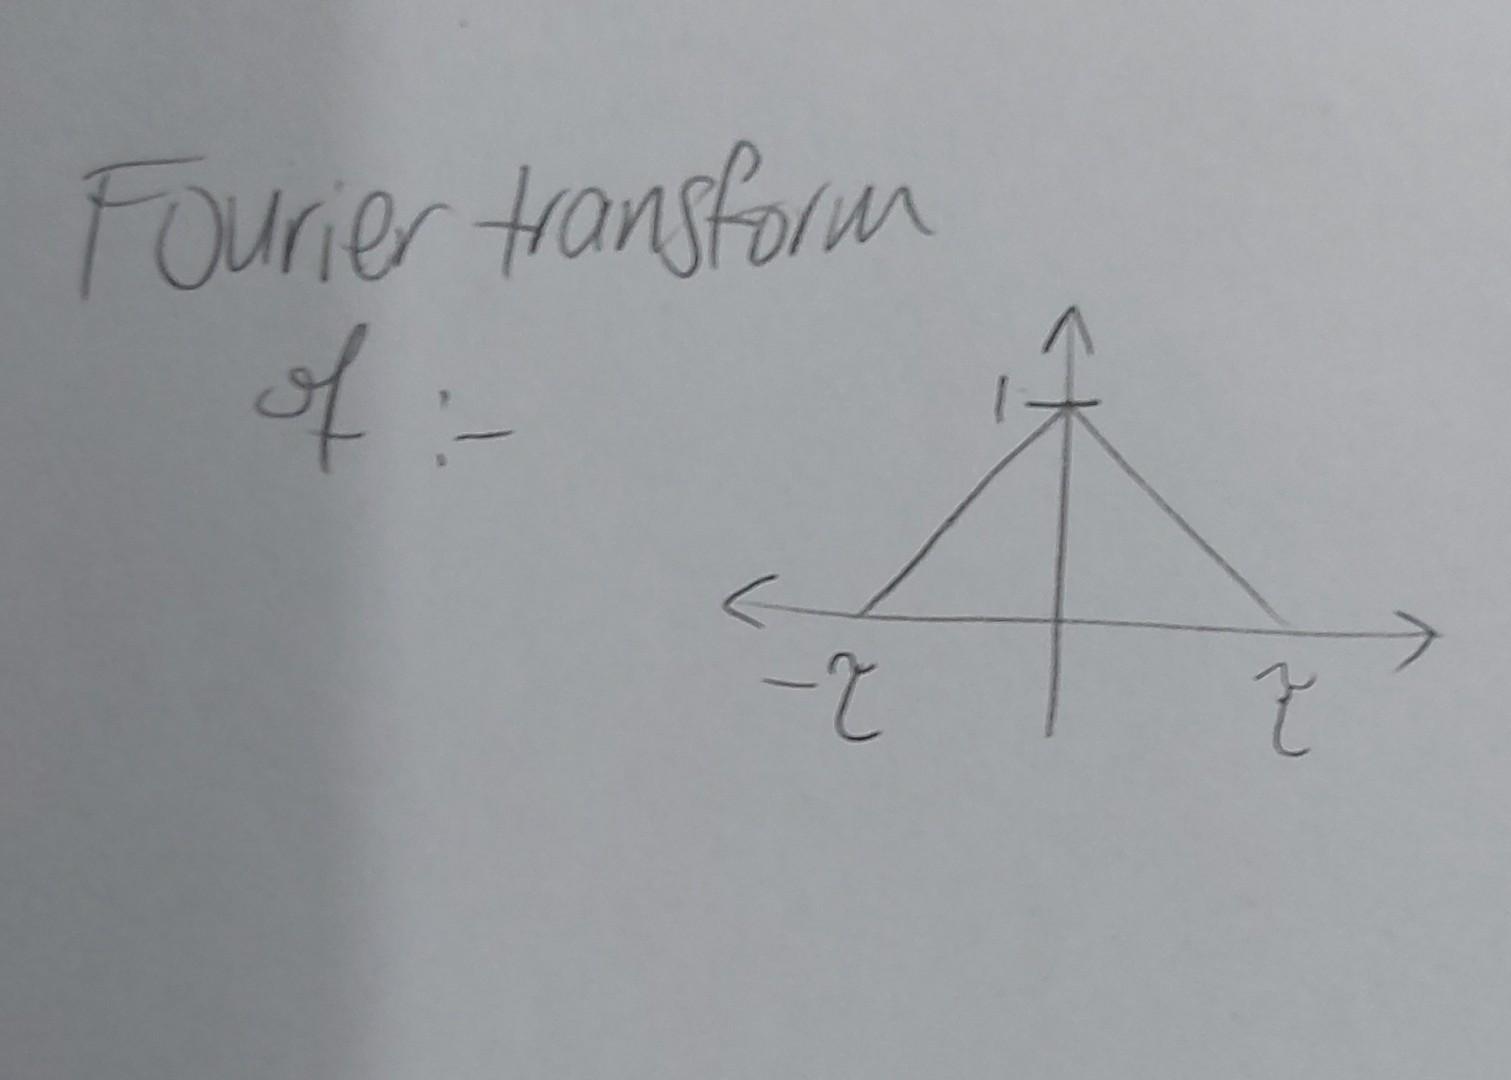 Fourier transform
of :-
1
-τ
τ